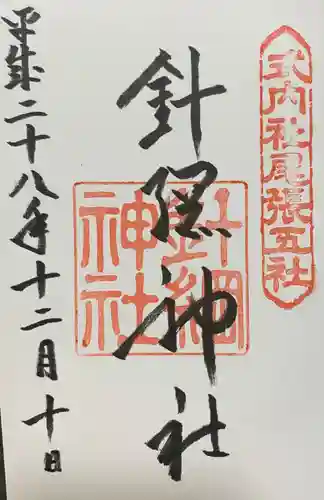 式内社尾張五社
針綱神社
針綱
神社
平成二十八年十二月十日